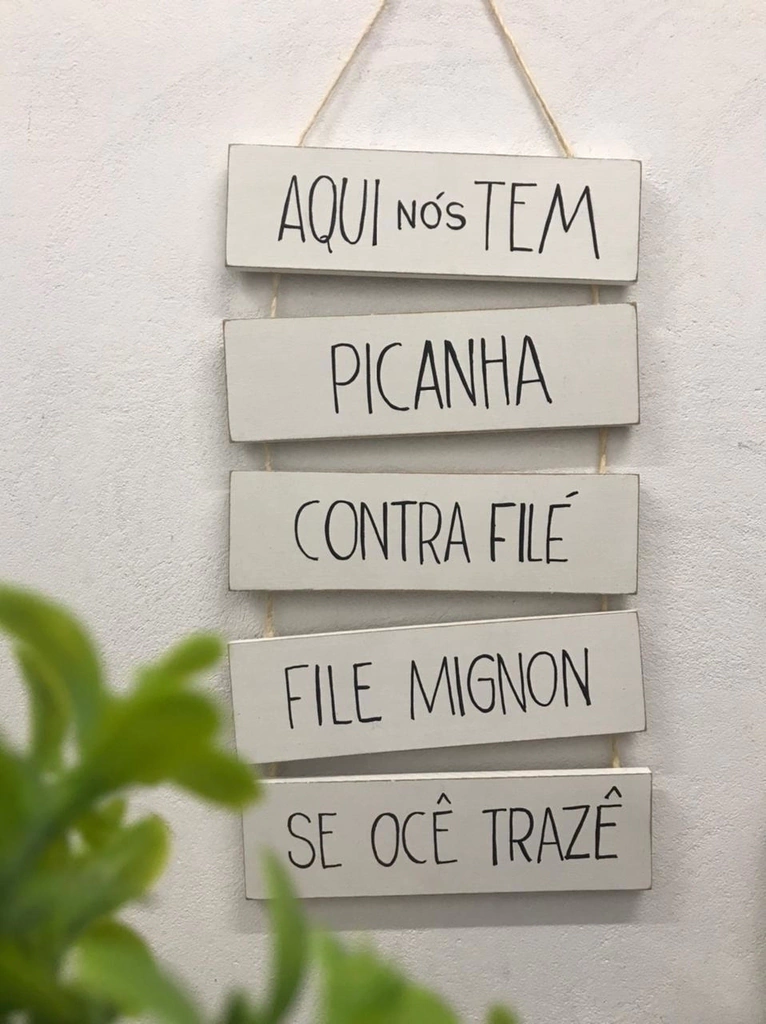 AQUI NÓS TEM
PICANHA
CONTRA FILÉ
FILE MIGNON
SE OCÊ TRAZÊ